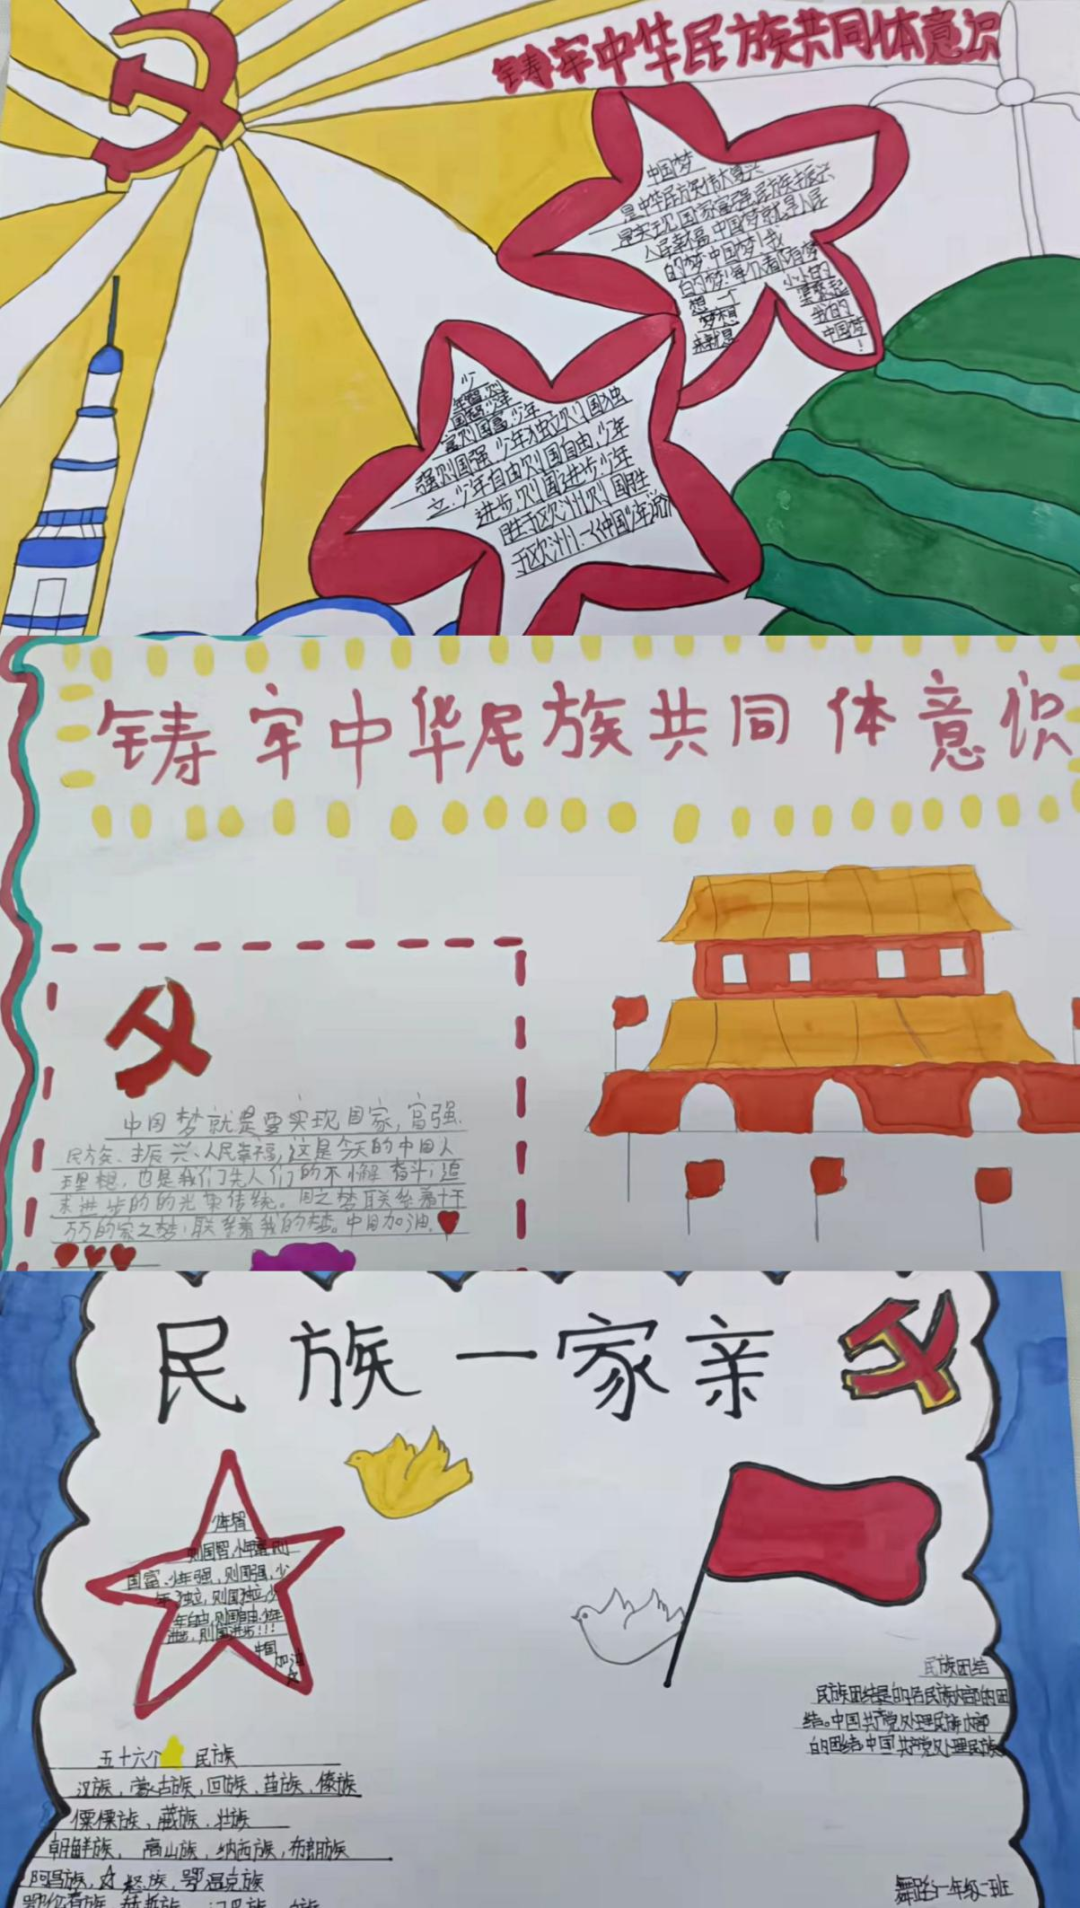 铸牢中华民族共同体意识
中国梦
是中华民族伟大复兴
是实现国家富强民族振兴
人民幸福,中国梦就是人民
的梦,中国梦!我
的梦!每个有梦
想一个
梦想
来就是
小小的
汇聚起
我的
中国梦!
少
年智则
国智,少年
富则国富,少年
强则国强,少年独立则国独
立,少年自由则国自由,少年
进步则国进步,少年
胜于欧洲则国胜
于欧洲!
铸牢中华民族共同体意识
中国梦就是要实现国家,富强
民族、振兴、人民幸福,这是今天的中国人
理想,也是我们先人们的不懈奋斗,追
求进步的的光荣传统。国之梦联系着千千
万万的家之梦,联系着我的梦。中国加油
民族一家亲
少年智
则国智,少年富则
国富、少年强,则国强,少
年独立,则国独立,少
年自由,则国自由,少年
进步,则国进步!!!
中国
加油
民族团结
民族团结是的各民族内部的团
结。中国共产党处理民族内部
的团结中国共产党处理民族
五十六个民族
汉族,蒙古族,回族,苗族,傣族
傈僳族,藏族,壮族
朝鲜族,高山族,纳西族,布朗族
阿昌族,怒族,鄂温克族
一年级二班